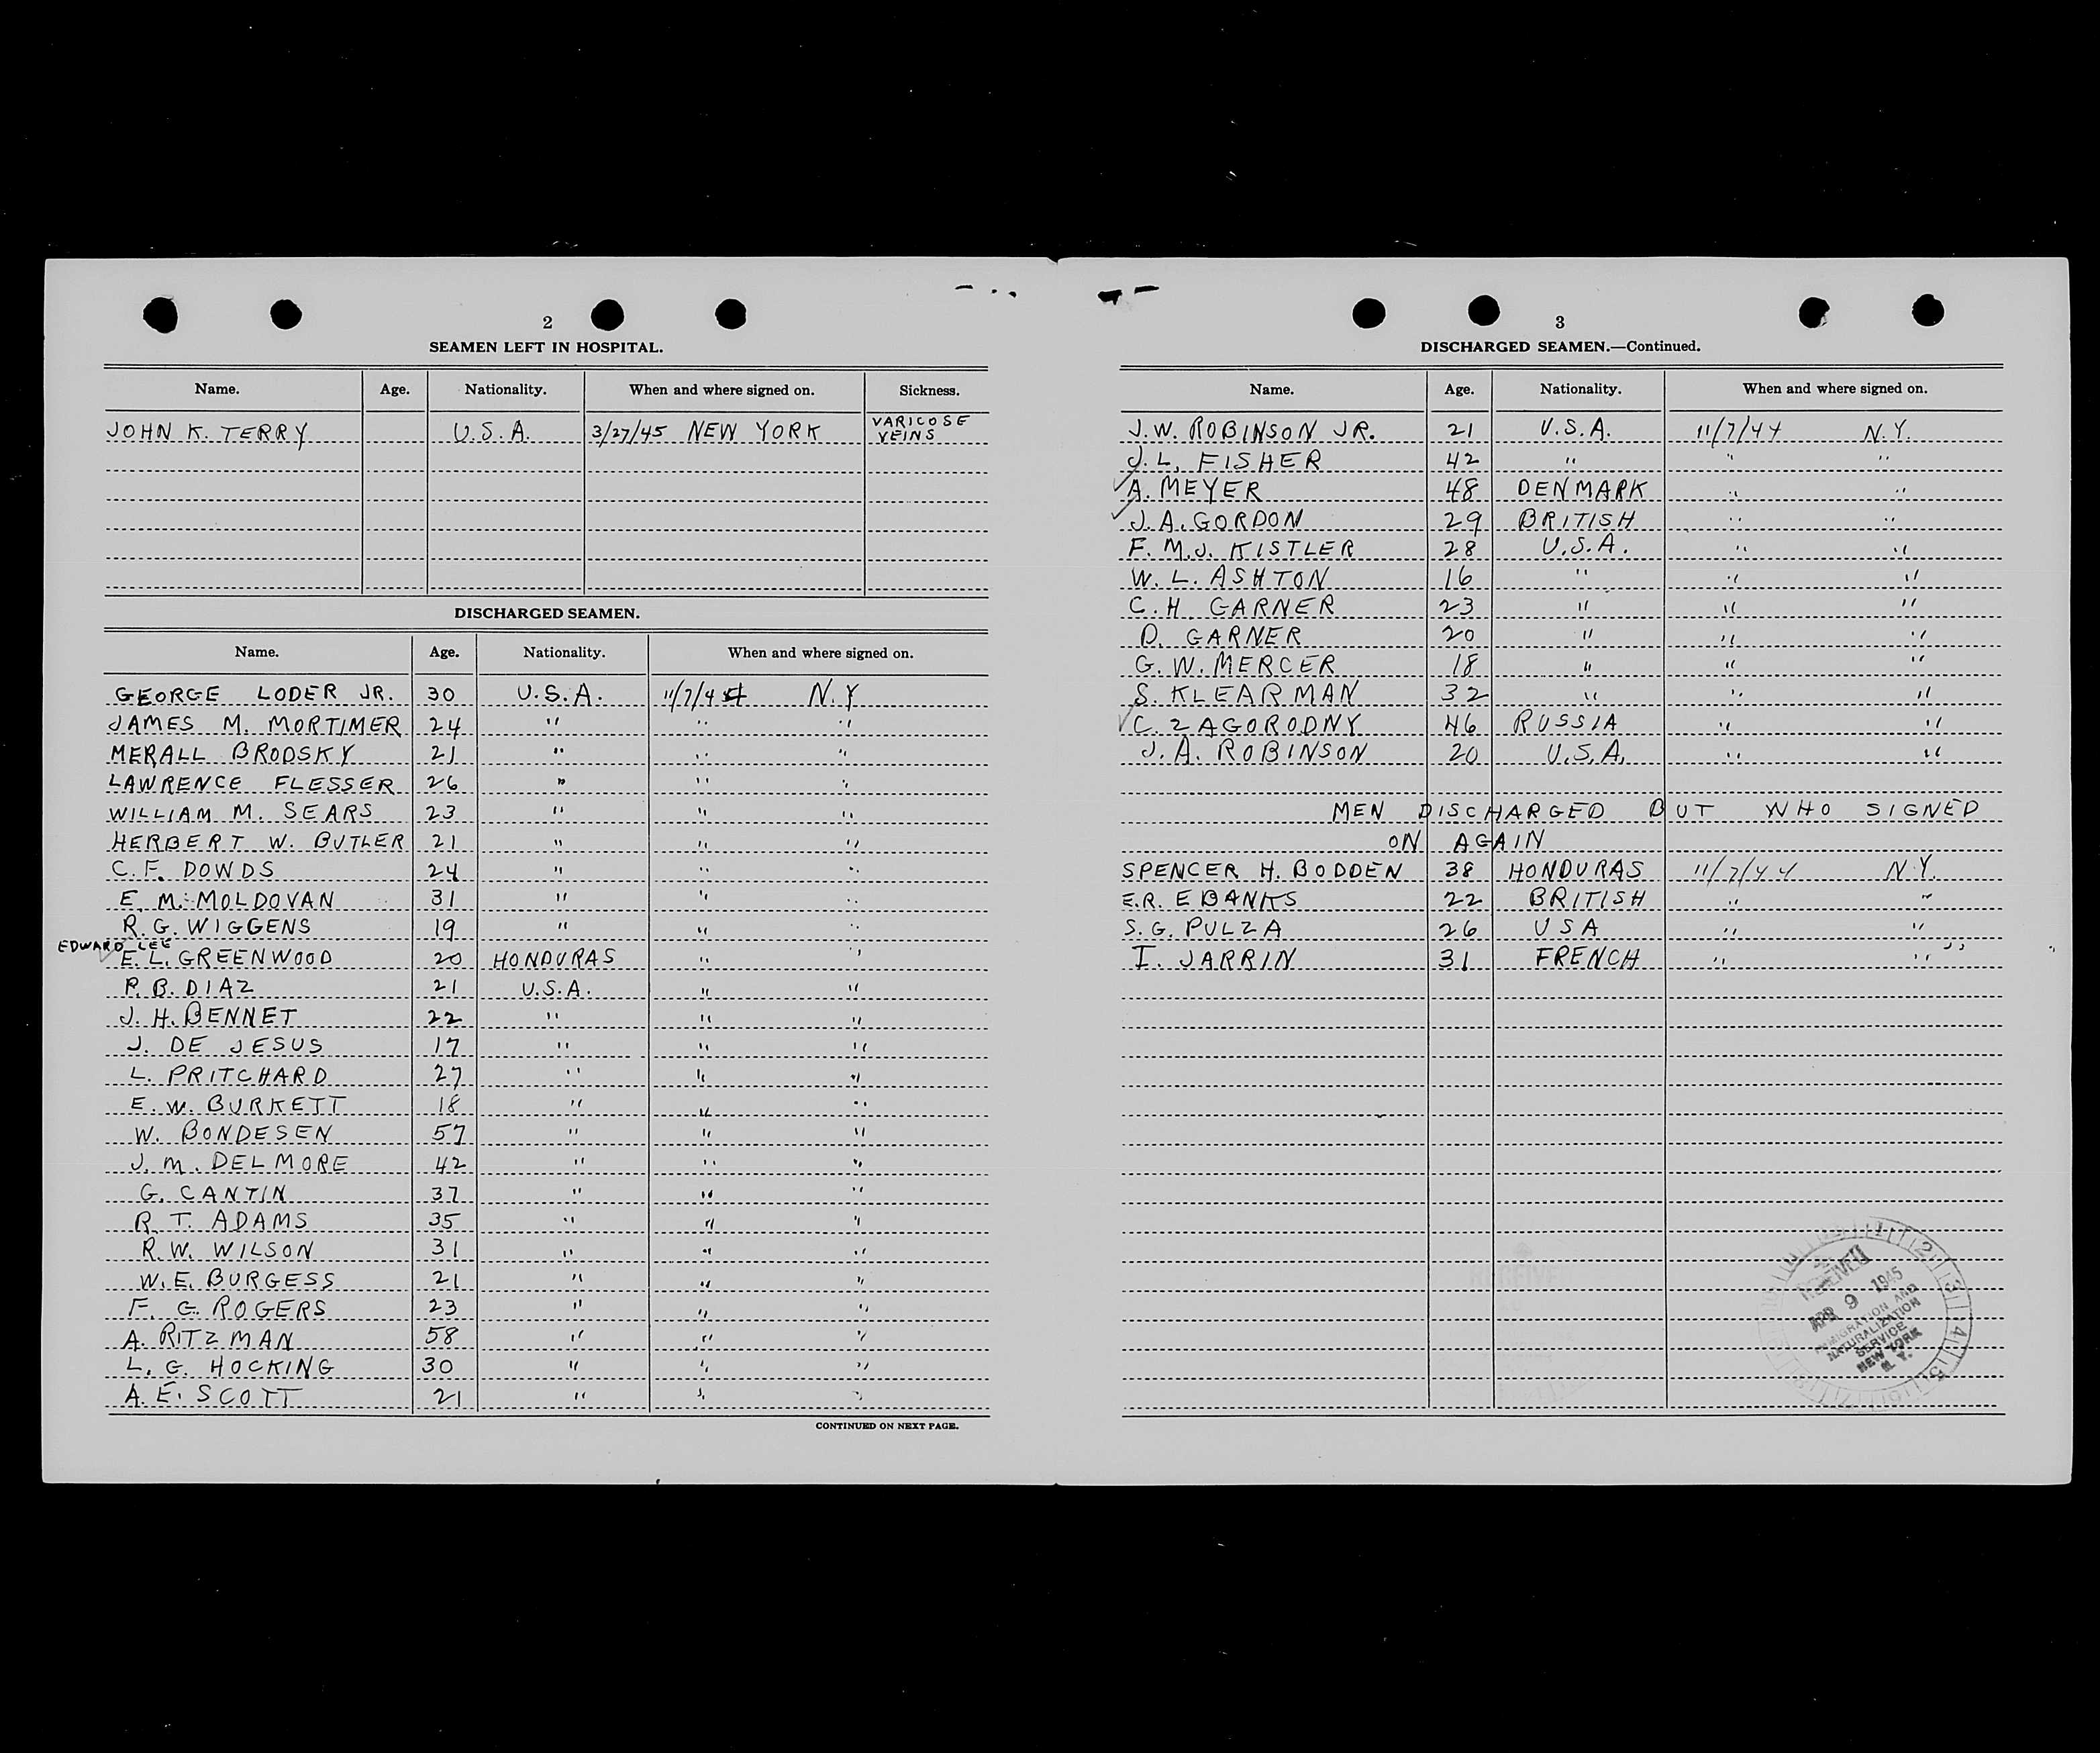 2
SEAMEN LEFT IN HOSPITAL.
Name. Age. Nationality. When and where signed on. Sickness.
JOHN K. TERRY U.S.A. 3/27/45 NEW YORK VARICOSE VEINS
DISCHARGED SEAMEN.
Name. Age. Nationality. When and where signed on.
GEORGE LODER JR. 30 U.S.A. 11/7/44 N.Y
JAMES M. MORTIMER 24 " " "
MERALL BRODSKY 21 " " "
LAWRENCE FLESSER 26 " " "
WILLIAM M. SEARS 23 " " "
HERBERT W. BUTLER 21 " " "
C.F. DOWDS 24 " " "
E. M. MOLDOVAN 31 " " "
R.G. WIGGENS 19 " " "
EDWARD LEE
E.L. GREENWOOD 20 HONDURAS " "
P.B. DIAZ 21 U.S.A. " "
J.H. BENNET 22 " " "
J. DE JESUS 17 " " "
L. PRITCHARD 27 " " "
E.W. BURKETT 18 " " "
W. BONDESEN 57 " " "
J.M. DELMORE 42 " " "
G. CANTIN 37 " " "
R.T. ADAMS 35 " " "
R.W. WILSON 31 " " "
W.E. BURGESS 21 " " "
F. G. ROGERS 23 " " "
A. RITZMAN 58 " " "
L.G. HOCKING 30 " " "
A.E. SCOTT 21 " " "
CONTINUED ON NEXT PAGE.
3
DISCHARGED SEAMEN.—Continued.
Name. Age. Nationality. When and where signed on.
J.W. ROBINSON JR. 21 U.S.A. 11/7/44 N.Y.
J.L. FISHER 42 " " "
A. MEYER 48 DENMARK " "
J.A. GORDON 29 BRITISH " "
F. M.J. KISTLER 28 U.S.A. " "
W. L. ASHTON 16 " " "
C.H. GARNER 23 " " "
D. GARNER 20 " " "
G.W. MERCER 18 " " "
S. KLEARMAN 32 " " "
C. ZAGORODNY 46 RUSSIA " "
J.A. ROBINSON 20 U.S.A. " "
MEN DISCHARGED BUT WHO SIGNED
ON AGAIN
SPENCER H. BODDEN 38 HONDURAS 11/7/44 N.Y.
E.R. EBANKS 22 BRITISH " "
S.G. PULZA 26 USA " "
I. JARRIN 31 FRENCH " "
RECEIVED
APR 9 1945
IMMIGRATION AND
NATURALIZATION
SERVICE
NEW YORK
N. Y.